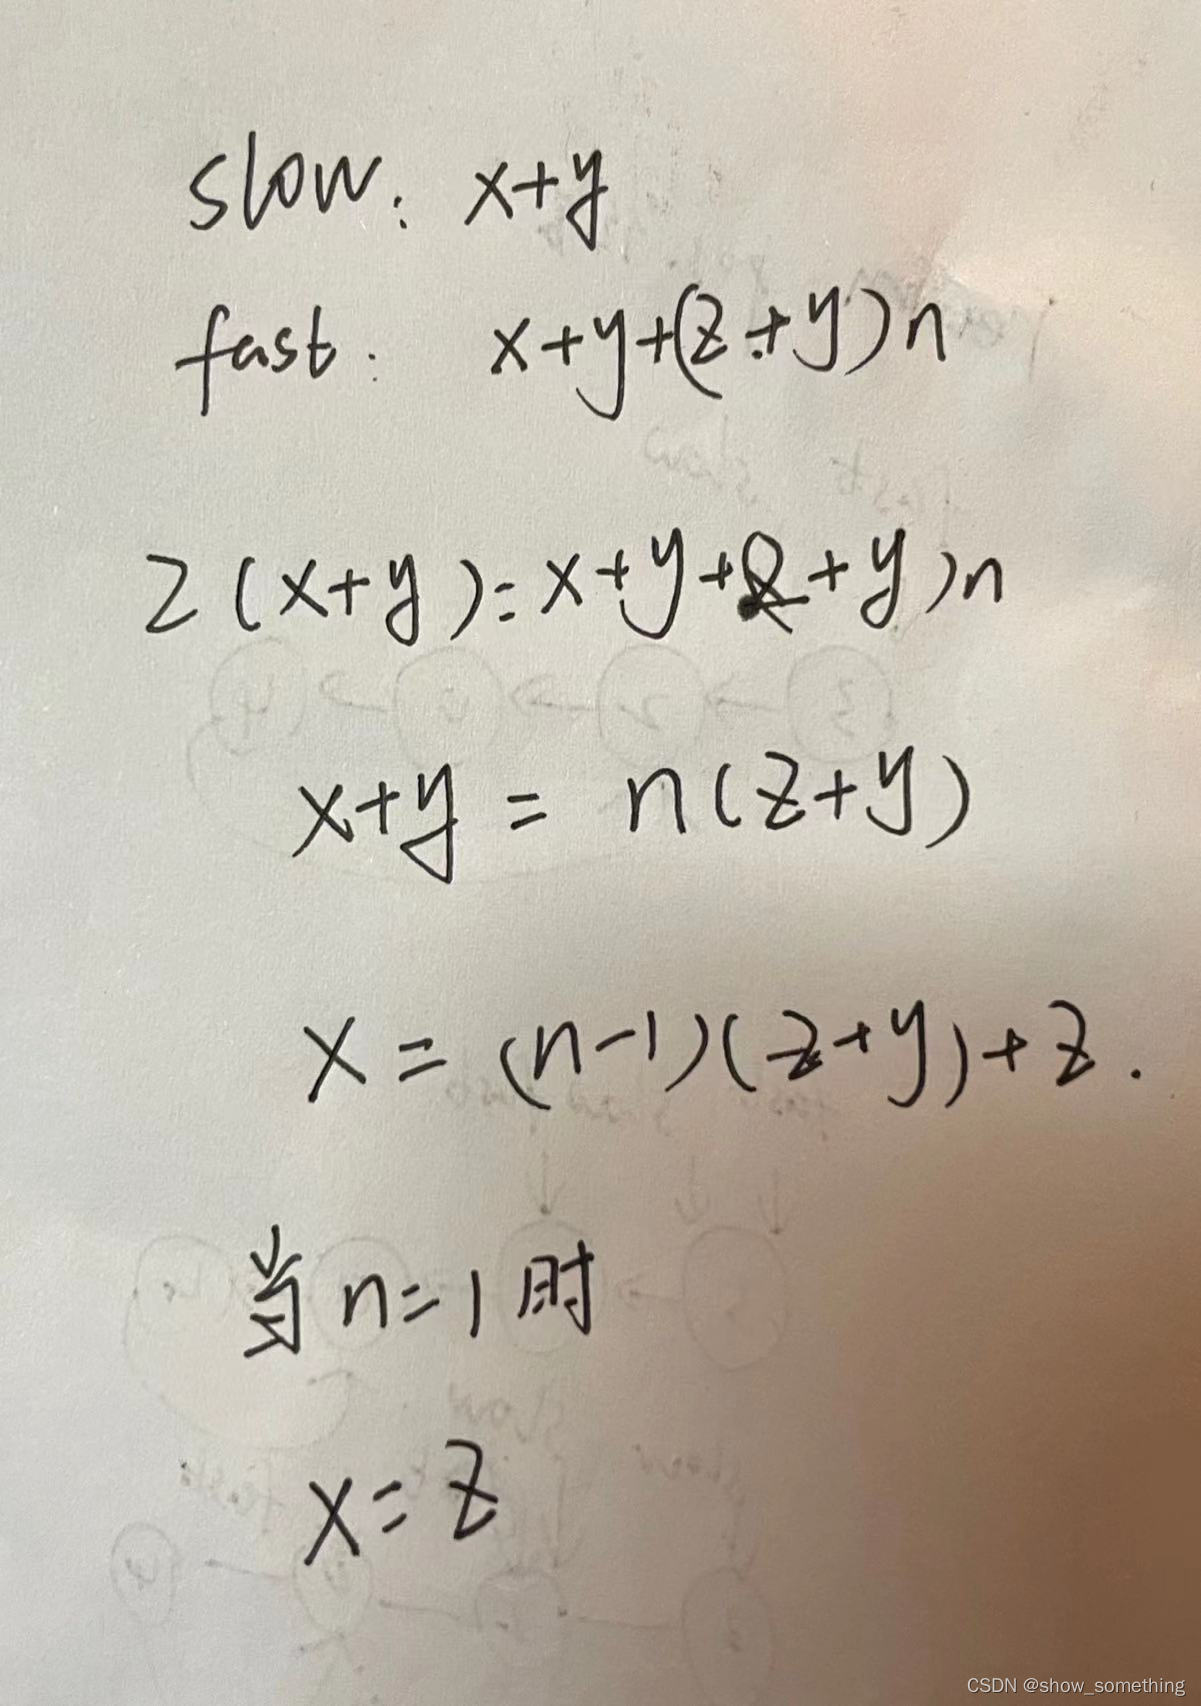 slow: x+y
fast: x+y+(z+y)n
2(x+y)=x+y+z+y)n
x+y = n(z+y)
x = (n-1)(z+y)+z.
当n=1时
x=z
CSDN @show_something